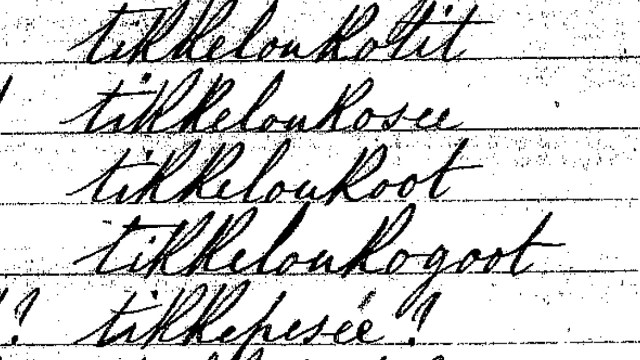 tikkeloukotit
tikkeloukosee
tikkeloukoot
tikkeloukogoot
? tikkepesée?